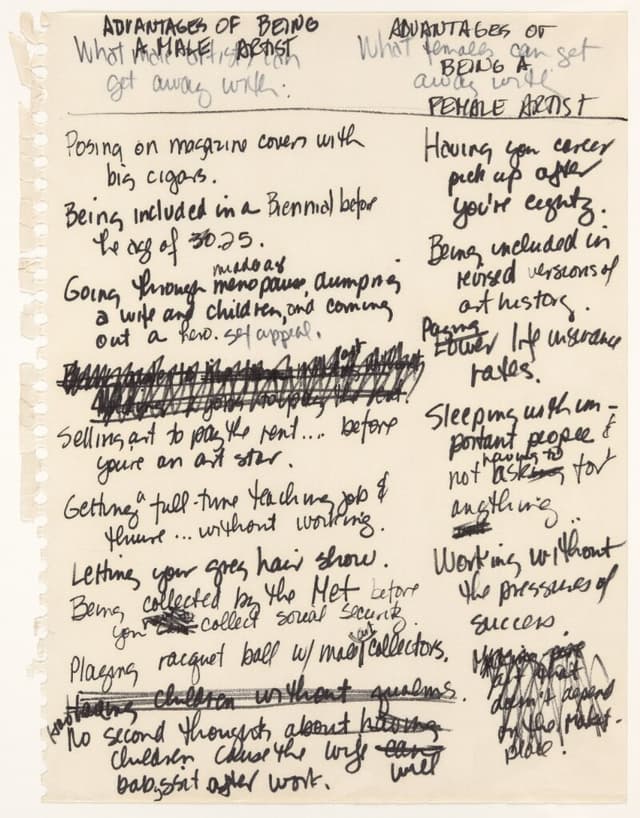 ADVANTAGES OF BEING
A MALE ARTIST
What male artists can
get away with:
Posing on magazine covers with
big cigars.
Being included in a Biennial before
the age of 30. 25.
Going through menopause, dumping
a wife and children, and coming
out a hero. sex appeal.
Selling art to pay the rent.... before
you're an art star.
Getting a full-time teaching job &
tenure ... without working.
Letting your grey hair show.
Being collected by the Met before
you collect social security.
Playing racquet ball w/ male art collectors.
Having children without qualms.
No second thoughts about having
children cause the wife can will
babysit after work.
ADVANTAGES OF
BEING A
FEMALE ARTIST
What females can get
away with
Having your career
pick up after
you're eighty.
Being included in
revised versions of
art history.
Paying
Lower life insurance
rates.
Sleeping with im-
portant people &
not having to asking for
anything ..
Working without
the pressures of
success.
art that
doesn't depend
on the market-
place.